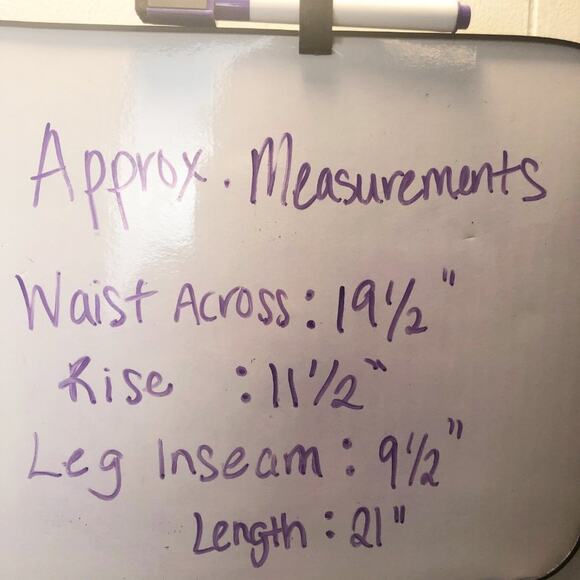 Approx. Measurements
Waist Across: 19 1/2"
Rise : 11 1/2"
Leg Inseam: 9 1/2"
Length: 21"